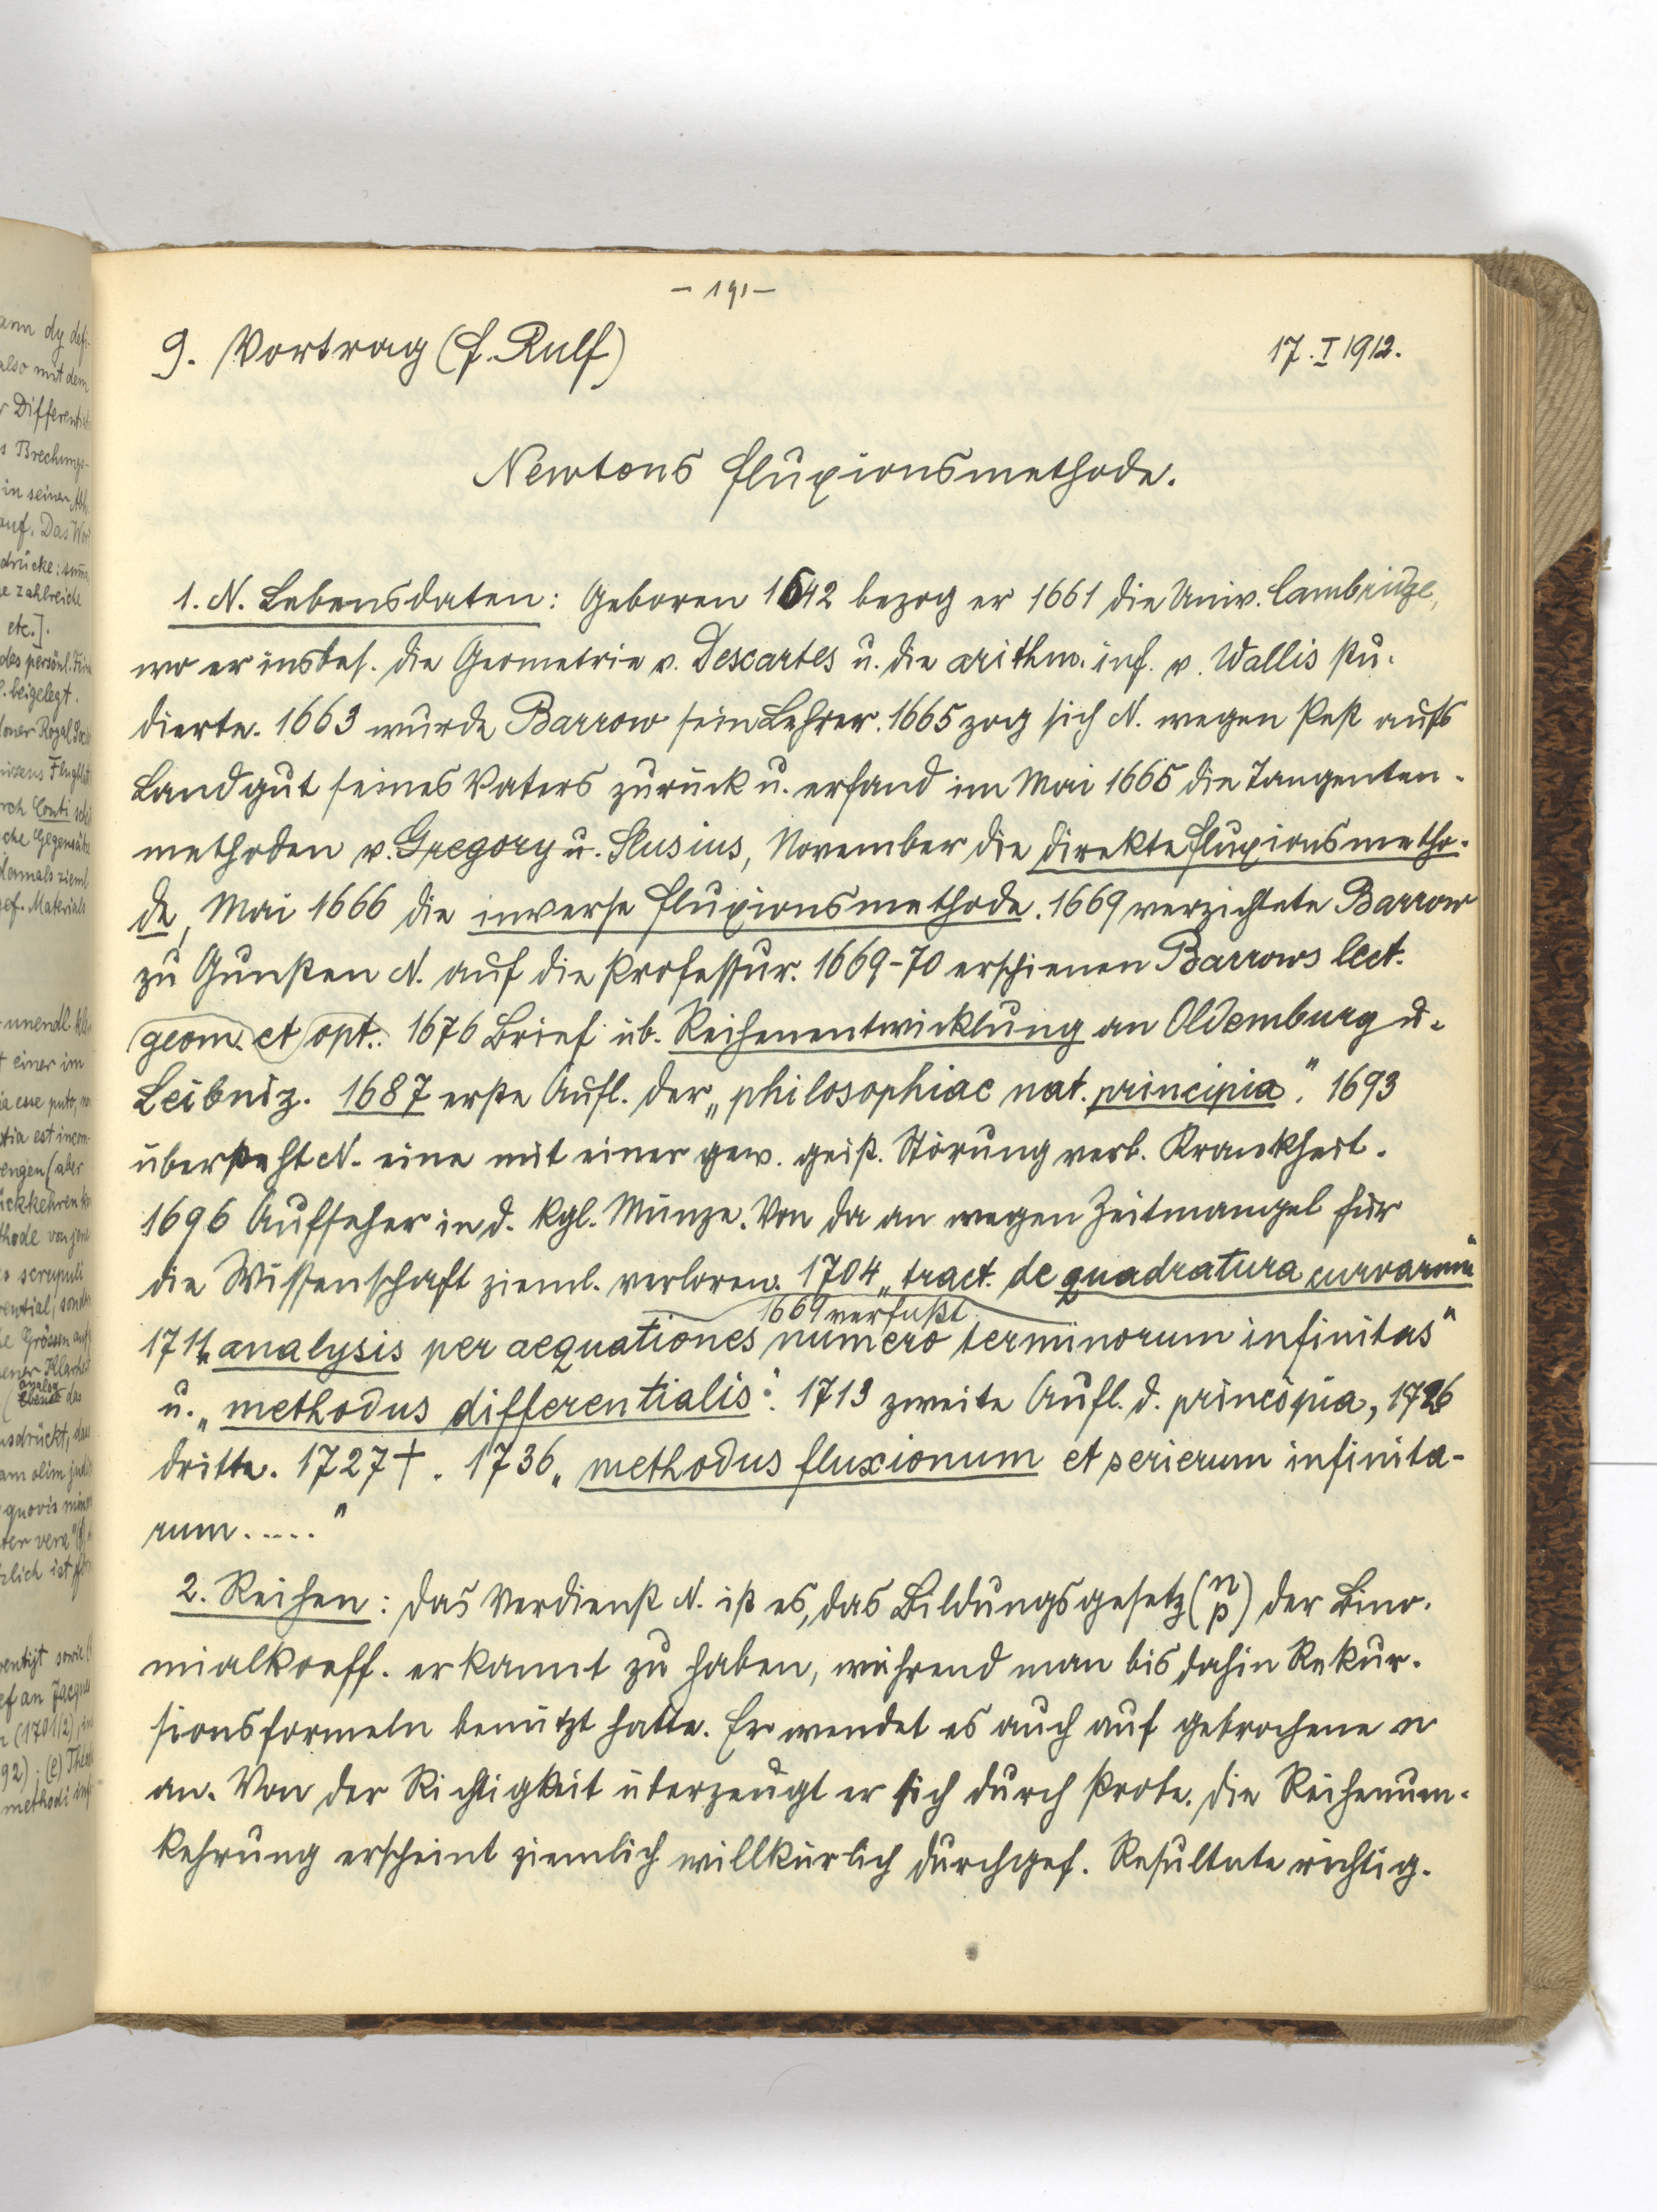 - 191 -
9. Vortrag (F. Rulf)
17. I 1912.
Newtons Fluxionsmethode.
1. N. Lebensdaten: Geboren 1642 bezog er 1661 die Univ. Cambridge,
wo er insbes. die Geometrie v. Descartes u. die arithm. inf. v. Wallis stu-
dierte. 1663 wurde Barrow sein Lehrer. 1665 zog sich N. wegen Pest aufs
Landgut seines Vaters zurück u. erfand im Mai 1665 die Tangenten-
methoden v. Gregory u. Slusius, November die direkte Fluxionsmetho-
de, Mai 1666 die inverse Fluxionsmethode. 1669 verzichtete Barrow
zu Gunsten N. auf die Professur. 1669-70 erschienen Barrows lect.
geom. et opt.. 1676 Brief üb. Reihenentwicklung an Oldemburg u.
Leibniz. 1687 erste Aufl. der „philosophiae nat. principia". 1693
übersteht N. eine mit einer gew. geist. Störung verb. Krankheit.
1696 Aufseher in d. kgl. Münze. Von da an wegen Zeitmangel für
die Wissenschaft zieml. verloren. 1704 „tract. de quadratura curvarum"
1669 verfaßt
1711 „analysis per aequationes numero terminorum infinitas"
u. „methodus differentialis". 1713 zweite Aufl. d. principia, 1726
dritte. 1727 †. 1736 „methodus fluxionum et serierum infinita-
rum....."
2. Reihen: Das Verdienst N. ist es, das Bildungsgesetz (n p) der Bino-
mialkoeff. erkannt zu haben, während man bis dahin Rekur-
sionsformeln benützt hatte. Er wendet es auch auf gebrochene n
an. Von der Richtigkeit überzeugt er sich durch Probe. Die Reihenum-
kehrung erscheint ziemlich willkürlich durchgef. Resultate richtig.